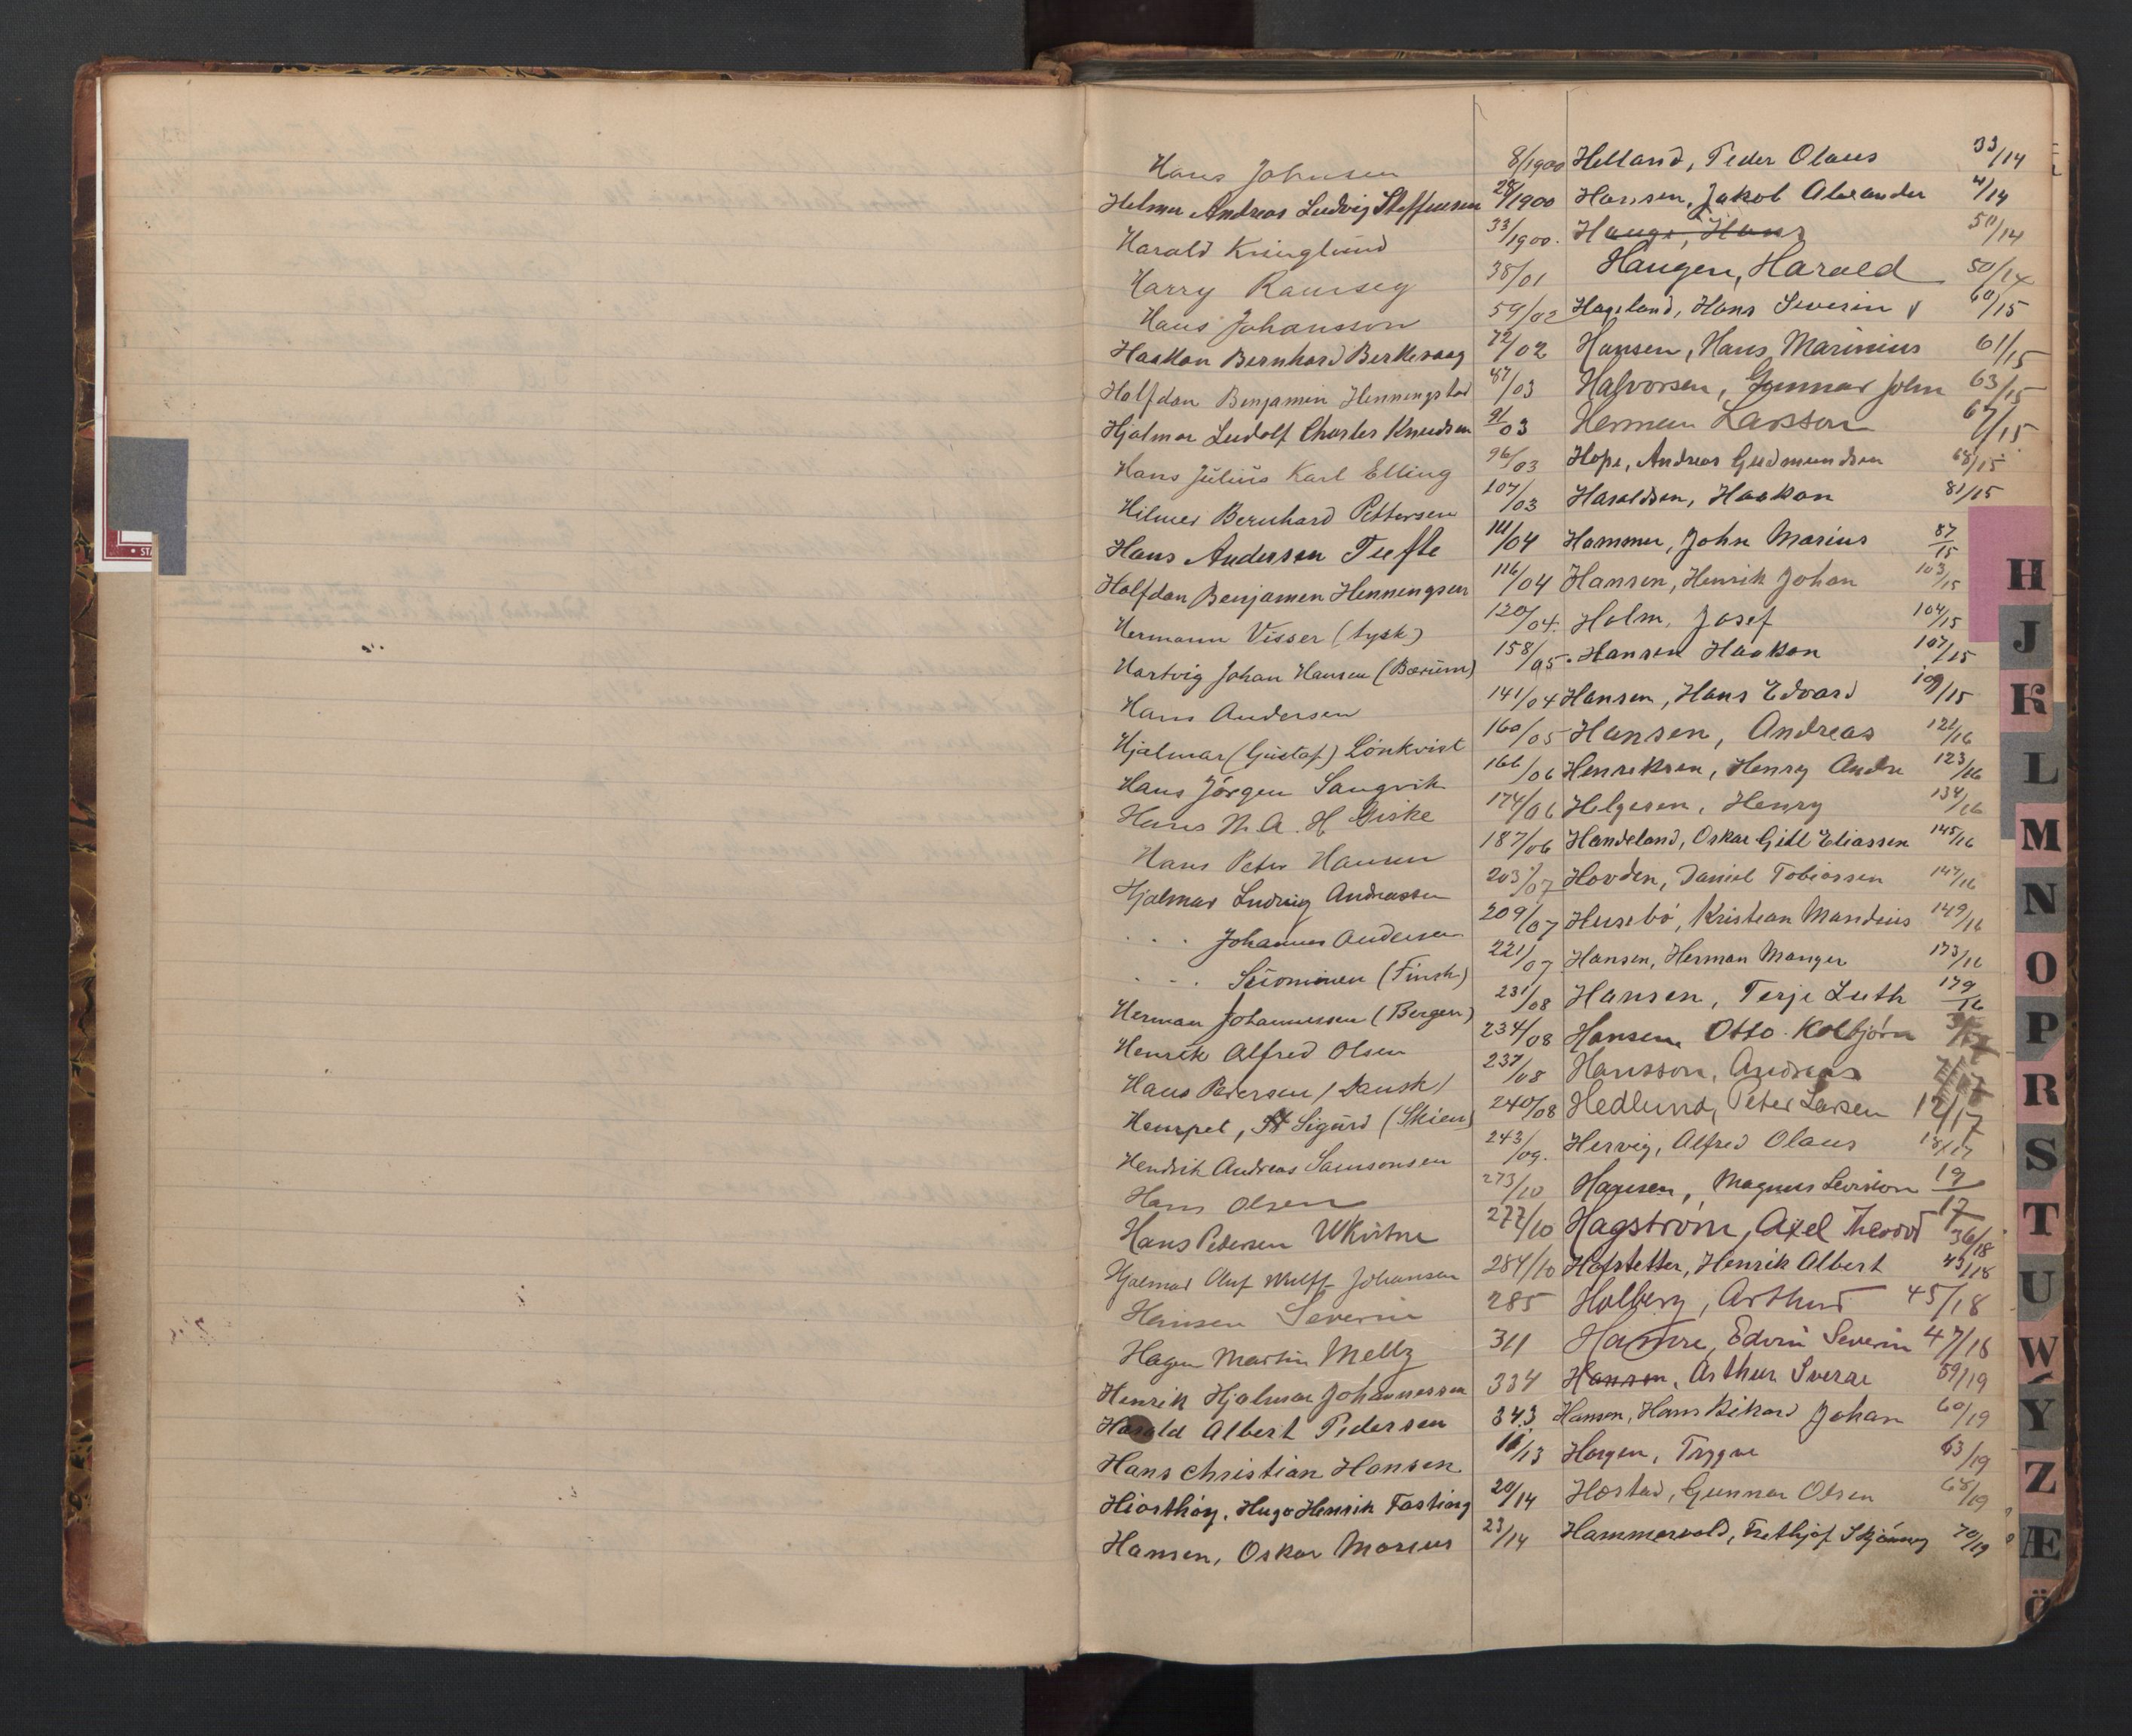 Hans Johnsen 8/1900
Helmer Andreas Ludvig Steffensen 28/1900
Harald Kninglund 33/1900.
Harry Ramsey 38/01
Hans Johansson 59/02
Haakon Bernhard Berkevaag 72/02
Halfdan Benjamin Henningstad 87/03
Hjalmar Ludolf Charles Knudsen 91/03
Hans Julius Karl Elling 96/03
Hilmer Bernhard Pettersen 107/03
Hans Andersen Tufte 111/04
Halfdan Benjamen Henningsen 116/04
Hermann Visser (tysk) 120/04.
Hartvig Johan Hansen (Bærum) 158/05.
Hans Andersen 141/04
Hjalmar (Gustaf) Lönkvist 160/05
Hans Jörgen Sangvik 166/06
Hans N. A. H. Giske 174/06
Hans Peter Hansen 187/06
Hjalmar Ludvig Andreassen 203/07
. . . Johannes Andersen 209/07
. . . Suominen (Finsk) 221/07
Herman Johannessen (Bergen) 231/08
Henrik Alfred Olsen 234/08
Hans Pedersen / Dansk / 237/08
Hempel, Sigurd (Skien) 240/08
Hendrik Andreas Samsonsen 243/09.
Hans Olsen 273/10
Hans Pedersen 277/10
Hjalmar Oluf Wulff Johansen 284/10
Hansen Severin 285
Hagen Martin Meltz 311
Henrik Hjalmar Johannessen 334
Harald Albert Pedersen 343
Hans Christian Hansen 11/13
Hiorthöy, Hugo Henrik Fasting 20/14
Hansen, Oskar Marius 23/14
Helland, Peder Olaus 33/14
Hansen, Jakob Alexander 41/14
Hauge, Hans 50/14
Haugen, Harald 50/14
Hageland, Hans Severin 60/15
Hansen, Hans Marinius 61/15
Halvorsen, Gunnar John 63/15
Herman Larsson 67/15
Hope, Andreas Gudmundsen 68/15
Haraldsen, Haakon 81/15
Hammer, John Marius 87/15
Hansen, Henrik Johan 103/15
Holm, Josef 104/15
Hansen Haakon 107/15
Hansen, Hans Edvard 109/15
Hansen, Andreas 121/16
Henriksen, Henry Andre 123/16
Helgesen, Henry 134/16
Handeland, Oskar Gill Eliassen 145/16
Hovden, Daniel Tobiassen 147/16
Husebö, Kristian Mandius 149/16
Hansen, Herman Manger 173/16
Hansen, Terje Luth 179/16
Hansen, Otto Kolbjörn
Hansson, Andreas
Hedlund, Peter Larsen 12/17
Hervig, Alfred Olaus 18/17
Hagesen, Magnus Levison 19/17
Hagström, Axel Theodor 36/18
Hofstetter, Henrik Albert 43/18
Holberg, Arthur 45/18
Hamre, Edvin Severin 47/18
Hansen, Arthur Sverre 59/19
Hansen, Hans Rikard Johan 60/19
Horgen, Trygve 63/19
Hæstad, Gunnar Olsen 68/19
Hammervold, Frethjof 70/19
H
J
K
L
M
N
O
P
R
S
T
U
W
Y
Z
Æ
Ö